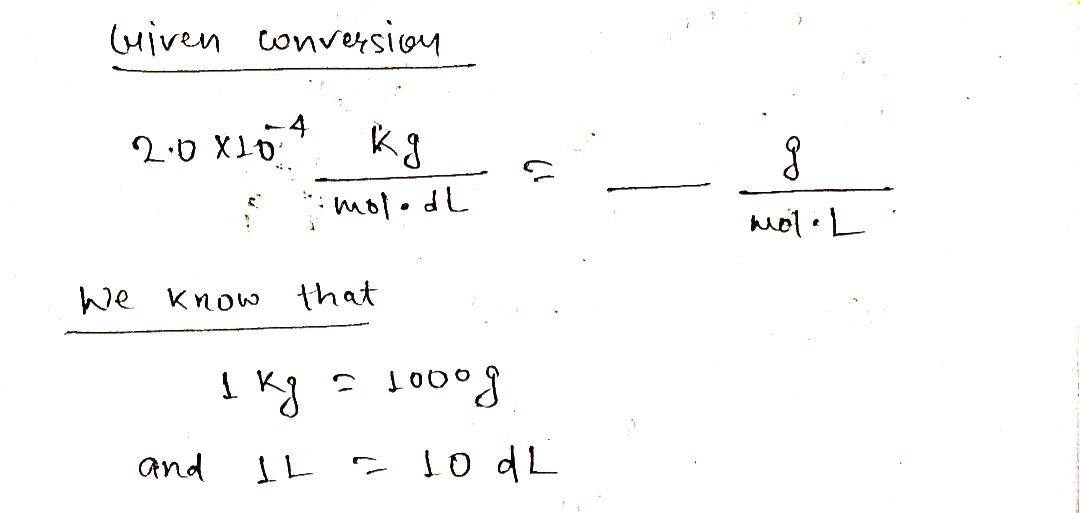 Given conversion
2.0 X10⁻⁴ Kg/mol·dL = ___ g/mol·L
We know that
1 Kg = 1000g
and 1L = 10 dL